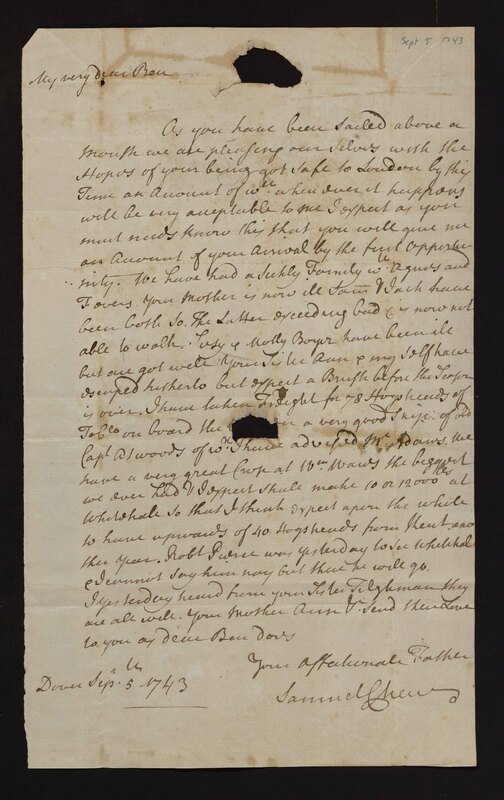 Sept 5. 1743
My very dear Ben
As you have been Sailed above a
Month we are pleasing our Selves with the
Hopes of your being got Safe to London by this
Time an Account of wch. when ever it happens
will be very acceptable to me I expect as you
must needs know this that you will give me
an Account of your Arrival by the first Opportu
nity. We have had a Sickly Family wth Agues and
Fevers. Your Mother is now ill Sam & Jack have
been both So. The Latter exceeding bad & is now not
able to walk. & Molly Boyer have been ill
but are got well. Your Sister Ann & my Self have
escaped hitherto but expect a Brush before the Season
is over. I have taken Freight for 78 Hogsheads of
Tobo. on board the a very good Ship of old
Capt. Atwoods of wch. I have advised Mr. Adams. We
have a very great Crop at Wm Wards the biggest
we ever had & I expect shall make 10 or 12000 lbs at
Whitehale So that I think I expect upon the whole
to have upwards of 40 Hogsheads from Kent
this Year. Robt. Pierce was yesterday to See Whitehal
& I cannot Say him nay but there he will go.
I yesterday heard from your Sister Tilghman they
are all well. Your Mother Ann &c. Send their Love
to you as dear Ben does
Your Affectionate Father
Samuel Chew
Dover Sepr. 5th 1743